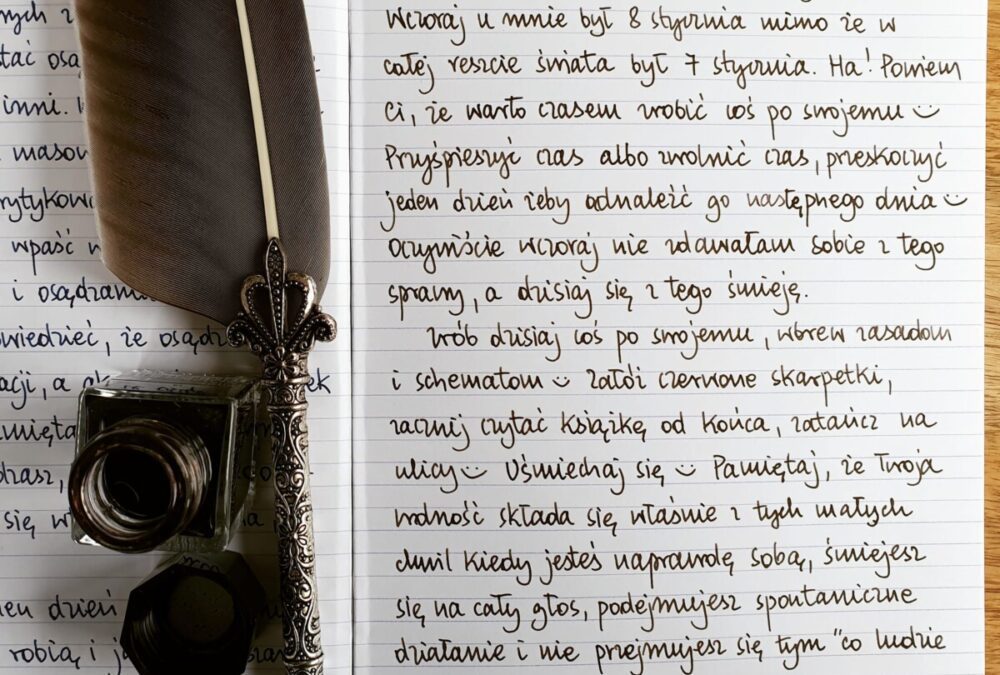 inni.
wpaść w
i
że
acji, a
się
dzień
robią i
Wczoraj u mnie był 8 stycznia mimo że w
całej reszcie świata był 7 stycznia. Ha! Powiem
Ci, że warto czasem zrobić coś po swojemu :)
Przyśpieszyć czas albo zwolnić czas, przeskoczyć
jeden dzień żeby odnaleźć go następnego dnia :)
Oczywiście wczoraj nie zdawałam sobie z tego
sprawy, a dzisiaj się z tego śmieję.
Zrób dzisiaj coś po swojemu, wbrew zasadom
i schematom :) Załóż czerwone skarpetki,
zacznij czytać książkę od końca, zatańcz na
ulicy :) Uśmiechaj się :) Pamiętaj, że Twoja
wolność składa się właśnie z tych małych
chwil kiedy jesteś naprawdę sobą, śmiejesz
się na cały głos, podejmujesz spontaniczne
działanie i nie przejmujesz się tym "co ludzie